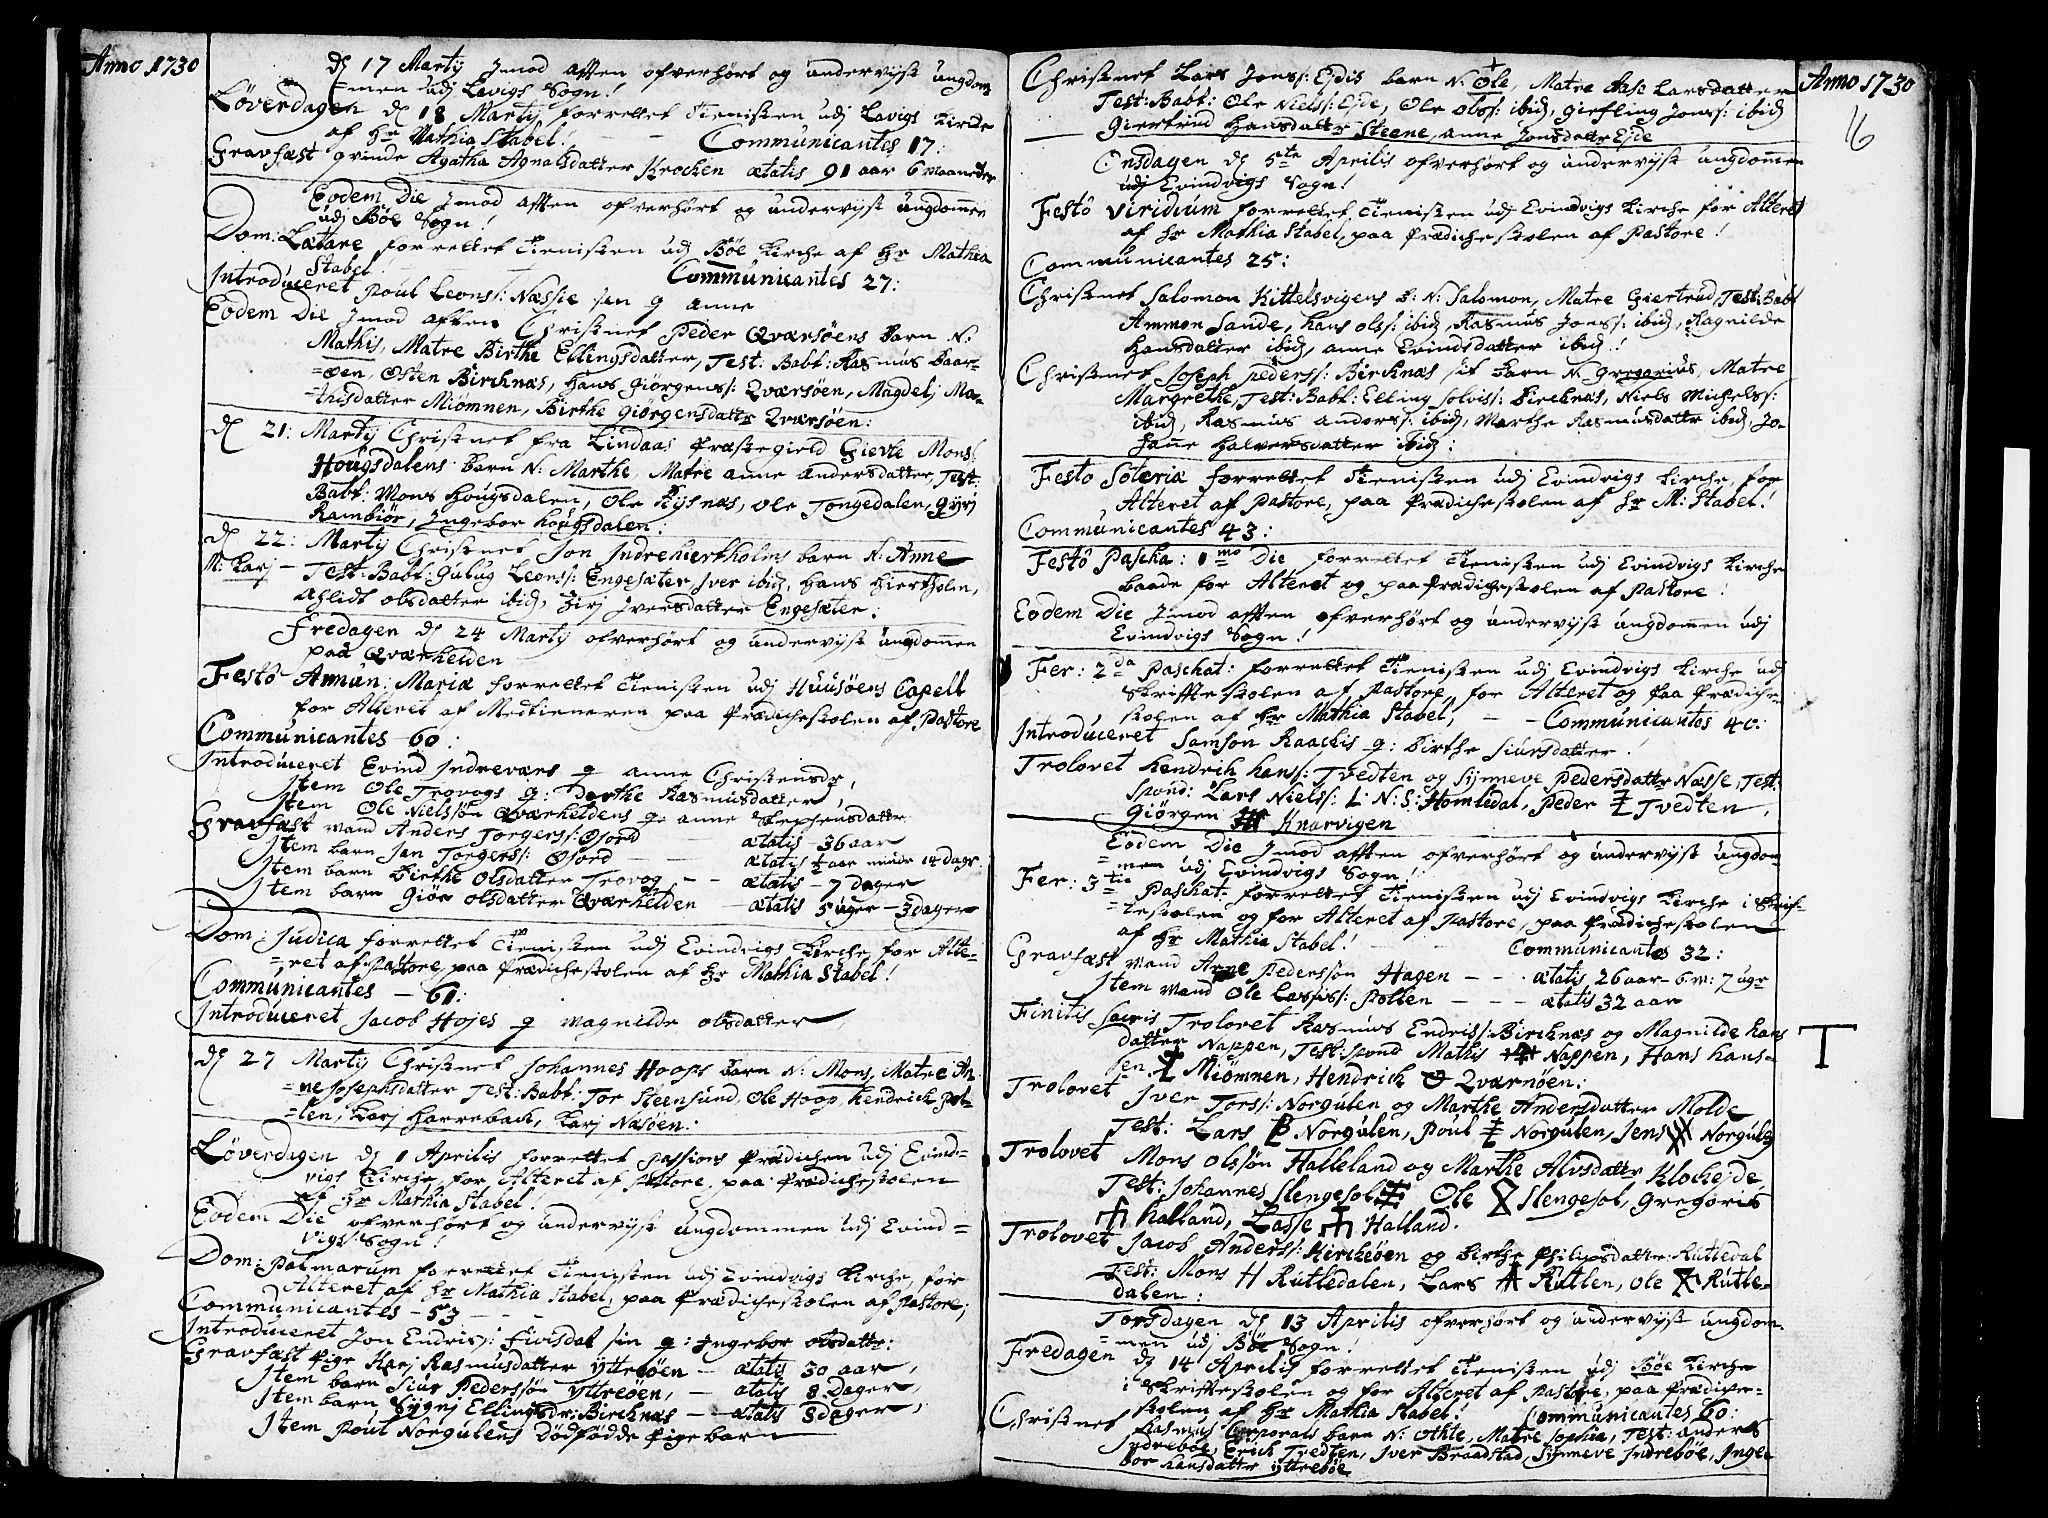 Anno 1730
d 17 Martij Jmod afften ofverhørt og undervjst ungdom¬
=men udj Lavigs Sogn!
Löverdagen d 18 Martij forrettet Tienisten udj Lavigs Kirche
af Hr Mathia Stabel! Communicantes 17:
Gravfæst qvinde Agatha Agnalsdatter Krochen ætatis 91 aar 6 maaneder
Eodem Die Jmod afften ofverhørt og undervjst ungdommen
udj Böe Sogn!
Dom: Lætare forrettet Tienisten udj Böe Kirche af Hr Mathia
Stabel! Communicantes 27:
Introduceret Poul Leons: Næssie sen q anne
Eodem Die Jmod aften Christnet Peder Qværsöens Barn N:
Mathis, Matre Birthe Ellingsdatter, Test: Babt: Rasmus Baar¬
=öen, Østen Birchnæs, Hans Giörgens: Qværsöen, Magdelj Ma¬
=thisdatter Miömnen, Birthe Giörgensdattr Qværsöen:
d 21: Martij Christnet fra Lindaas Præstegield Gievle Mons:
Hougsdalens Barn N: Marthe, Matre Anne Andersdatter, Test:
Babt: Mons Hougsdalen, Ole Risnæs, Ole Tongedalen, Gyrj
Rambiör, Ingebor Hougsdalen:
d 22: Martij Christnet Jon Indrehiertholms barn N: Anne
M: Karj — Test: Babt: Gulug Leons: Engesæter, Jver ibid, Hans Hiertholm,
Ahlidt olsdatter ibid, Zirj Jversdatter Engesæter:
Fredagen d 24 Martij ofverhørt og undervjst ungdommen
paa Qværhelden
Festô Annun: Mariæ forrettet Tienisten udj Huusöens Capell
for Alteret af Medtieneren paa Prædichestolen af Pastore
Communicantes 60:
Introduceret Evind Indreværs q anne Christensdr,
Jtem Ole Trovogs q: Dorthe Rasmusdatter,
Jtem Ole Nielssön Qværheldens q: anne Stephensdatter
Gravfæst Mand Anders Torgers: Ösord ætatis 36 aar
Jtem barn Jan Torgers: Ösord — — ætatis ½ aar minde 14 dagr:
Jtem barn Birthe Olsdatter Trovog — — ætatis — 7 Dager
Jtem barn Giör olsdatter Qværhelden — ætatis 5 uger — 3 dager
Dom: Judica forrettet Tienisten udj Evindvigs Kirche, for Alte¬
=ret af Pastore, paa Prædichestolen af Hr Mathia Stabel!
Communicantes — 61:
Introduceret Jacob Hojes q Magnilde olsdatter,
d 27 Martij Christnet Johannes Hoops barn N: Mons, Matre An¬
=ne Josephsdatter Test: Babt: Tor Steensund, Ole Hoop, Hendrich Pol¬
=len, Karj Harreback, Karj Nasöen:
Löverdagen d 1 Aprilis forrettet Passions Prædichen udj Evind¬
vigs Kirche, for Alteret af Pastore, paa Prædichestolen
af Hr Mathia Stabel!
Eodem Die ofverhørt og undervjst ungdommen udj Evind=
vigs Sogn!
Dom: Palmarum forrettet Tienisten udj Evindvigs Kirche, for
Alteret af Hr Mathia Stabel, paa Prædichestolen af Pastore;
Communicantes — 53
Introduceret Jon Endris: Fivisdal sin q: Ingebor olsdattr:
Gravfæst Pige Karj Rasmusdatter Yttreöen — ætatis 30 aar,
Jtem barn Siur Pederssön Yttreöen, — ætatis 8 Dager,
Jtem barn Sygnj Ellingsdr: Birchnæs — ætatis 8 dager,
Jtem Poul Norgulens Dödfödde Pige barn
Anno 1730
16
Christnet Lars Jons: Ejdis barn N: Ole, Matre Aase Larsdatter
Test: Babt: Ole Niels: Ejde, Ole Ols: ibid, Giefling Jons: ibid
Giertrud Hansdattr Steene, anne Jonsdattr Ejde
Onsdagen d 5te Aprilis ofverhørt og undervjst ungdommen
udj Evindvigs Sogn!
Festô Viridium forrettet Tienisten udj Evindvigs Kirche for Alteret
af Hr Mathia Stabel, paa Prædichestolen af Pastore!
Communicantes 25:
Christnet Salomon Kittelsvigens B: N: Salomon, Matre Giertrud, Test: Babt
Ammon Sande, Hans ols: ibid, Rasmus Jons: ibid, Ragnilde
Hansdatter ibid, anne Evindsdatter ibid!
Christnet Joseph Peders: Birchnæs sit Barn N. Gregorius, Matre
Margrethe, Test: Babt: Elling Solvis: Birchnæs, Niels Michels:
ibid, Rasmus Anders: ibid, Marthe Rasmusdatter ibid, Jo¬
hanne Halversdatter ibid:
Festo Soteriæ forrettet Tienisten udj Evindvigs Kirche, for
Alteret af Pastore, paa Prædichestolen af Hr M: Stabel!
Communicantes 43:
Festô Pascha: 1mo Die forrettet Tienisten udj Evindvigs Kirche
baade for Alteret og paa Prædichestolen af Pastore!
Eodem Die Jmod afften ofverhørt og undervjst ungdommen udj
Evindvigs Sogn!
Fer: 2da Paschat: forrettet Tienisten udj Evindvigs Kirche udj
Skriffte stolen af Pastore, for Alteret og paa Prædiche¬
stolen af Hr Mathia Stabel, — — Communicantes 40:
Introduceret Samson Raachis q: Birthe Siursdatter!
Trolovet Hendrich Hans: Tvedten og Synneve Pedersdattr Næsse, Test:
Spond: Lars Niels: L: N: S: Homledal, Peder Tvedten,
Giörgen Knarvigen
Eodem Die Jmod afften ofverhørt og undervjst ungdom¬
=men udj Evindvigs Sogn!
Fer: 3tia Paschat: forrettet Tienisten udj Evindvigs Kirche i Skrif¬
=testolen og for Alteret af Pastore, paa Prædichestolen
af Hr Mathia Stabel! Communicantes 32:
Gravfæst Mand Arne Pederssön Hagen — — ætatis 26 aar — 6 m: 7 ugr
Jtem Mand Ole Lassis: Pollen — — — ætatis 32 aar
Finitis Sacris Trolovet Rasmus Endris: Birchnæs og Magnilde Hans
datter Nappen, Test: Spond Mathis Nappen, Hans Hans¬
sen Miömnen, Hendrich Qværnöen:
T
Trolovet Jver Tors: Norgulen og Marthe Andersdatter Molde
Test: Lars B Norgulen, Poul Norgulen, Jens Norgulen
Trolovet Mons Olssön Halleland og Marthe Alvsdattr Klochejde,
Test: Johannes Slengesol Ole Slengesol, Gregoris
Halland, Lasse Halland.
Trolovet Jacob Anders: Hircheöen og Birthe Philipsdatter Rutledal
Test: Mons H Rutledalen, Lars Rutlen, Ole Rutle¬
dalen:
Torsdagen d 13 Aprilis ofverhørt og undervjst ungdom¬
=men udj Böe Sogn!
Fredagen d 14 Aprilis forrettet Tienisten udj Böe Kirche
i Skriftestolen og for Alteret af Pastore, paa Prædiche¬
stolen af Hr Mathia Stabel! Communicantes
Christnet Rasmus Corporals barn N: Othte, Matre Sophia, Test: anders
Indreböe, Erich Tvedten, Iver Braadstad, Synneve Indreböe, Inge¬
bor Hansdatter Yttreböe